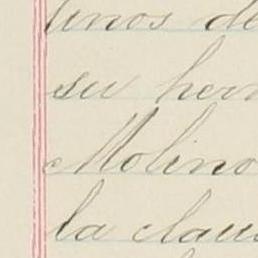 unos de
su her
Molino
la clau